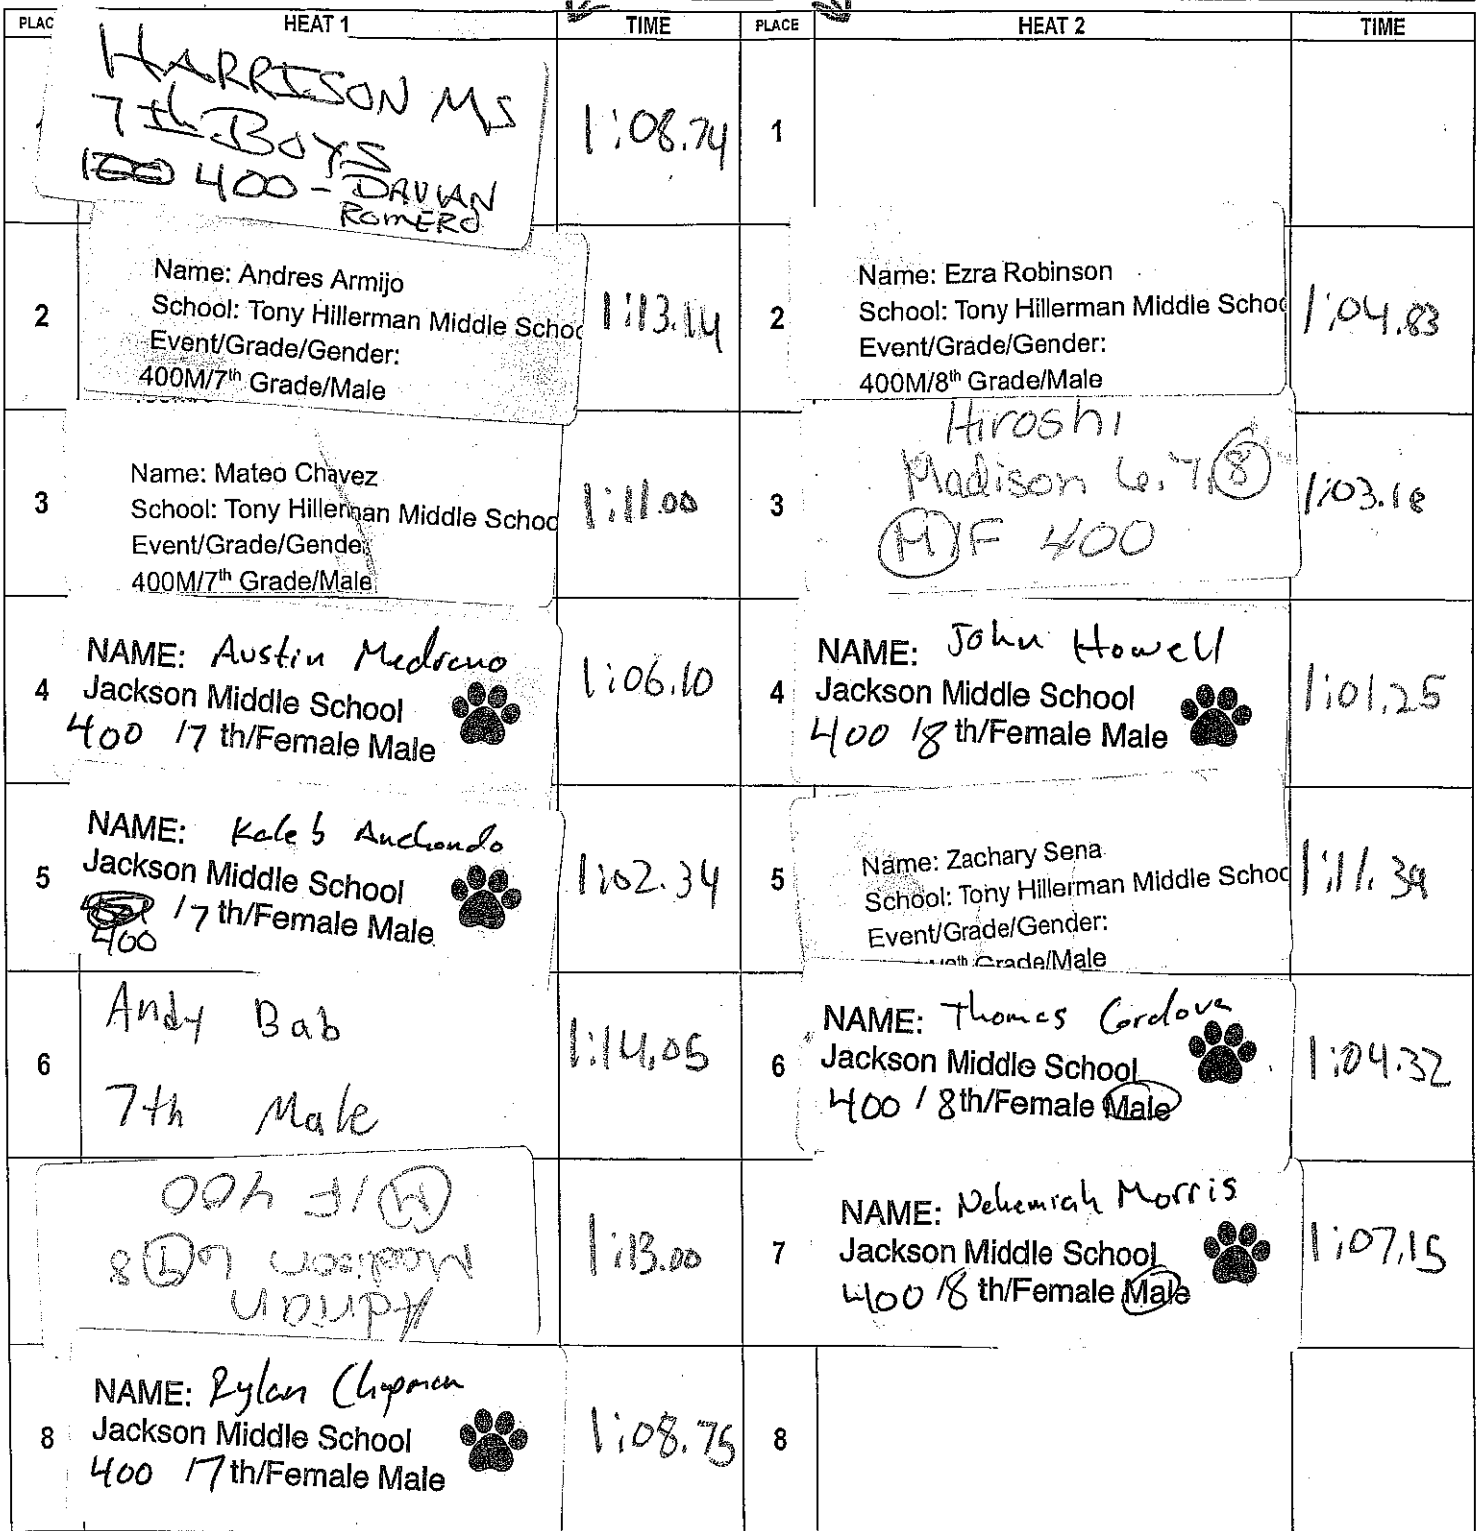 PLAC HEAT 1 TIME PLACE HEAT 2 TIME
HARRISON MS
7th BOYS
400 - DAVIAN
ROMERO
1:08.74
1
2
Name: Andres Armijo
School: Tony Hillerman Middle Schoo
Event/Grade/Gender:
400M/7th Grade/Male
1:13.14
2
Name: Ezra Robinson
School: Tony Hillerman Middle Schoo
Event/Grade/Gender:
400M/8th Grade/Male
1:04.83
3
Name: Mateo Chavez
School: Tony Hillerman Middle Schoo
Event/Grade/Gender
400M/7th Grade/Male
1:11.00
3
Hiroshi
Madison 6.7.8
M/F 400
1:03.18
4
NAME: Austin Medrano
Jackson Middle School
400 /7 th/Female Male
1:06.10
4
NAME: John Howell
Jackson Middle School
400 /8 th/Female Male
1:01.25
5
NAME: Kaleb Anchondo
Jackson Middle School
/7 th/Female Male
400
1:02.34
5
Name: Zachary Sena
School: Tony Hillerman Middle Schoo
Event/Grade/Gender:
Grade/Male
1:11.39
6
Andy Bab
7th Male
1:14.05
6
NAME: Thomas Cordova
Jackson Middle School
400 / 8th/Female Male
1:04.32
Adrian
Madison 6 7 8
M/F 400
1:13.00
7
NAME: Nehemiah Morris
Jackson Middle School
400 /8 th/Female Male
1:07.15
8
NAME: Rylan Chapman
Jackson Middle School
400 /7 th/Female Male
1:08.75
8